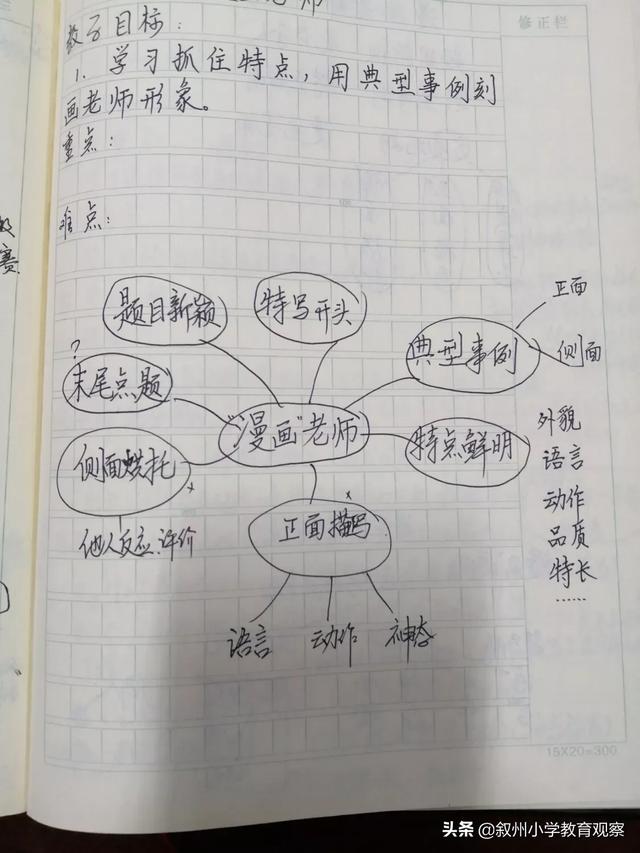 老师
修正栏
教学目标：
1. 学习抓住特点，用典型事例刻
画老师形象。
重点：
难点：
赛
题目新颖
特写开头
正面
典型事例
侧面
?
末尾点题
"漫画"老师
特点鲜明
外貌
语言
动作
品质
特长
……
侧面烘托
x
他人反应、评价
x
正面描写
语言
动作
神态
15X20=300
头条 @叙州小学教育观察